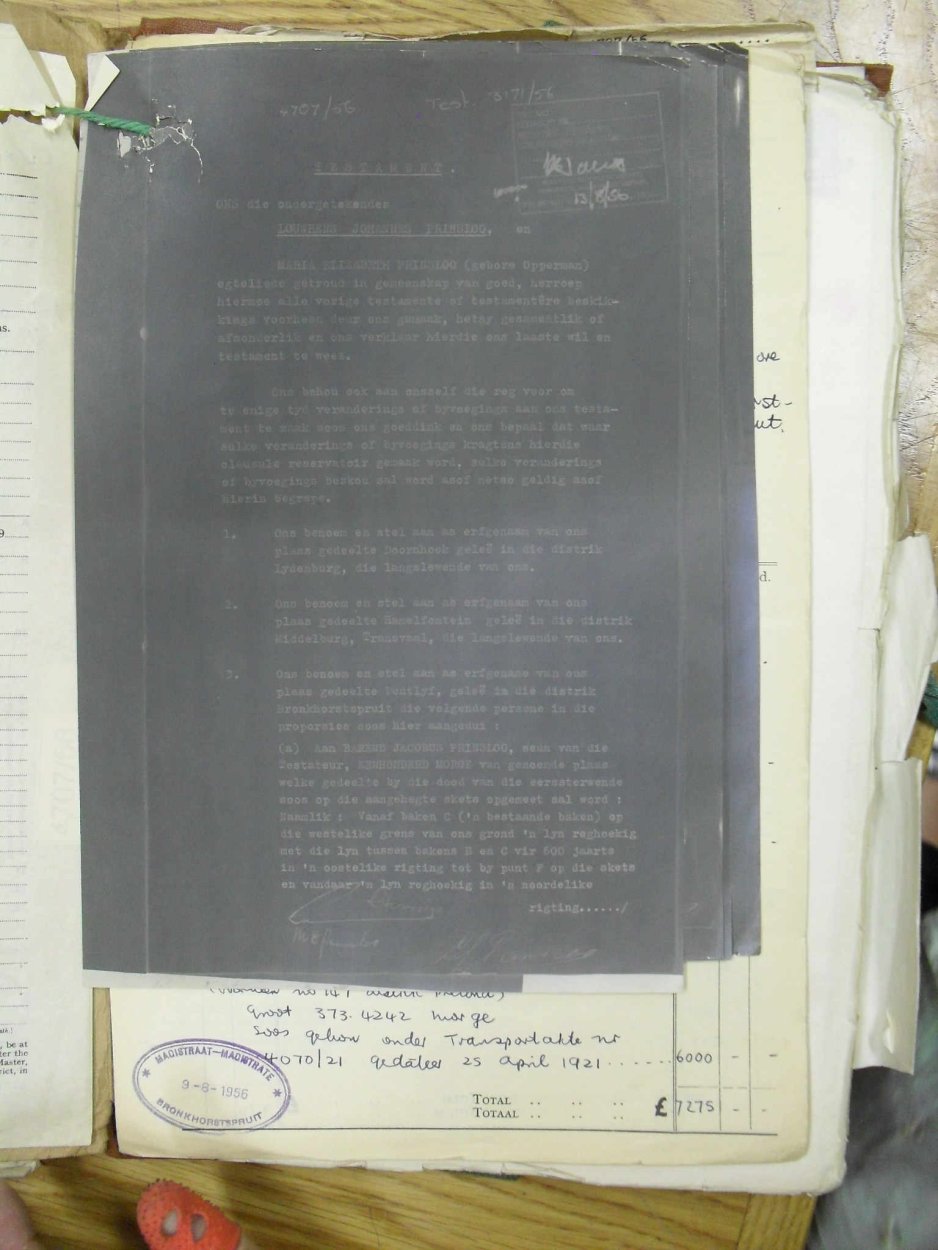 4707/56 Test. 3171/56
13/8/56
TESTAMENT.
ONS die ondergetekendes
LOURENS JOHANNES PRINSLOO, en
MARIA ELIZABETH PRINSLOO (gebore Opperman)
egteliede getroud in gemeenskap van goed, herroep
hiermee alle vorige testamente of testamentêre beskik-
kings voorheen deur ons gemaak, hetsy gesamentlik of
afsonderlik en ons verklaar hierdie ons laaste wil en
testament te wees.
Ons behou ook aan onsself die reg voor om
te enige tyd veranderings of byvoegings aan ons testa-
ment te maak soos ons goeddink en ons bepaal dat waar
sulke veranderings of byvoegings kragtens hierdie
clousule reservatoir gemaak word, sulke veranderings
of byvoegings beskou sal word asof netso geldig asof
hierin begrepe.
1. Ons benoem en stel aan as erfgenaam van ons
plaas gedeelte Doornhoek geleë in die distrik
Lydenburg, die langslewende van ons.
2. Ons benoem en stel aan as erfgenaam van ons
plaas gedeelte Hamelfontein geleë in die distrik
Middelburg, Transvaal, die langslewende van ons.
3. Ons benoem en stel aan as erfgename van ons
plaas gedeelte Onsgeleë in die distrik
Bronkhorstspruit die volgende persone in die
proporsies soos hier aangedui :
(a) Aan BAREND JACOBUS PRINSLOO, seun van die
Testateur, EENHONDERD MORGE van genoemde plaas
welke gedeelte by die dood van die eerssterwende
soos op die aangehegte skets opgemeet sal word :
Naamlik : Vanaf baken C ('n bestaande baken) op
die westelike grens van ons grond 'n lyn reghoekig
met die lyn tussen bakens B en C vir 600 jaarts
in 'n oostelike rigting tot by punt F op die skets
en vandaar 'n lyn reghoekig in 'n noordelike
rigting....../
groot 373.4242 morge
soos gehou onder Transportakte nr
4070/21 gedateer 25 April 1921 ..... 6000 - -
TOTAL .. .. ..
TOTAAL .. .. .. £ 7275 - -
MAGISTRAAT—MAGISTRATE
9-8-1956
BRONKHORSTSPRUIT